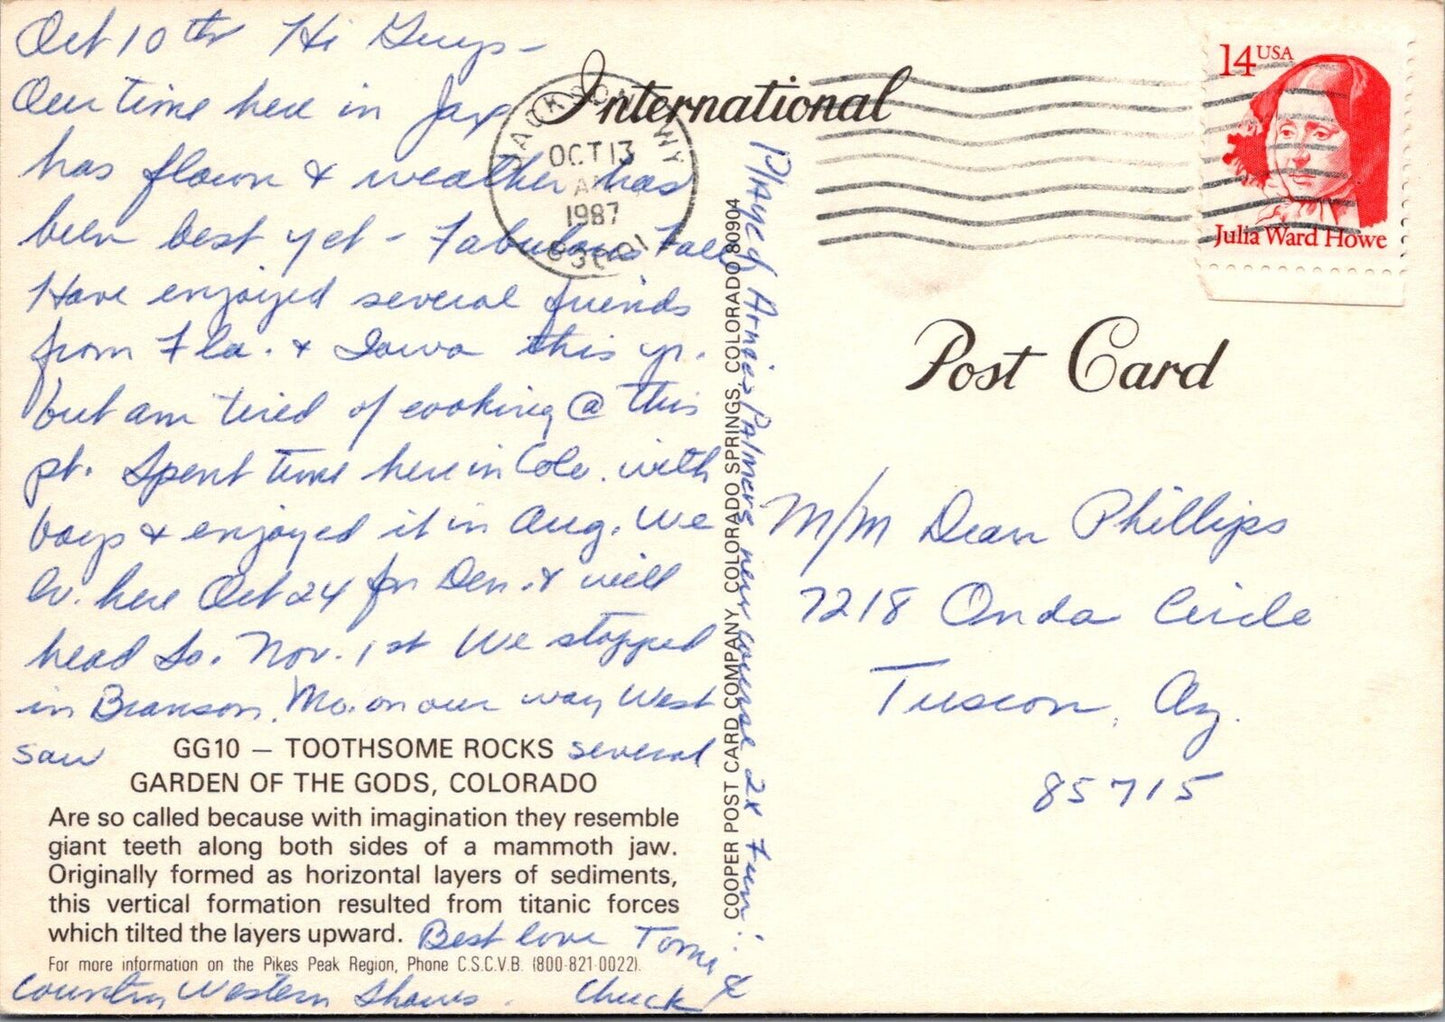 Oct 10th Hi Guys -
Our time here in Jax
has flown & weather has
been best yet - Fabulous Fall
Have enjoyed several friends
from Fla. & Iowa this yr.
but am tired of cooking @ this
pt. Spent time here in Colo. with
boys & enjoyed it in Aug. We
lv. here Oct 24 for Den. & will
head So. Nov. 1st We stopped
in Branson, Mo. on our way West
saw several
GG10 — TOOTHSOME ROCKS
GARDEN OF THE GODS, COLORADO
Are so called because with imagination they resemble
giant teeth along both sides of a mammoth jaw.
Originally formed as horizontal layers of sediments,
this vertical formation resulted from titanic forces
which tilted the layers upward.
For more information on the Pikes Peak Region, Phone C.S.C.V.B. (800-821-0022).
Country Western Shows.
Best love Tomi &
Chuck
Played Arnies Palmers new course 2x Fun!
COOPER POST CARD COMPANY, COLORADO SPRINGS, COLORADO 80904
International
JACKSON WY
OCT 13
AM
1987
83001
14 USA
Julia Ward Howe
Post Card
M/M Dean Phillips
7218 Onda Circle
Tuscon, Az.
85715